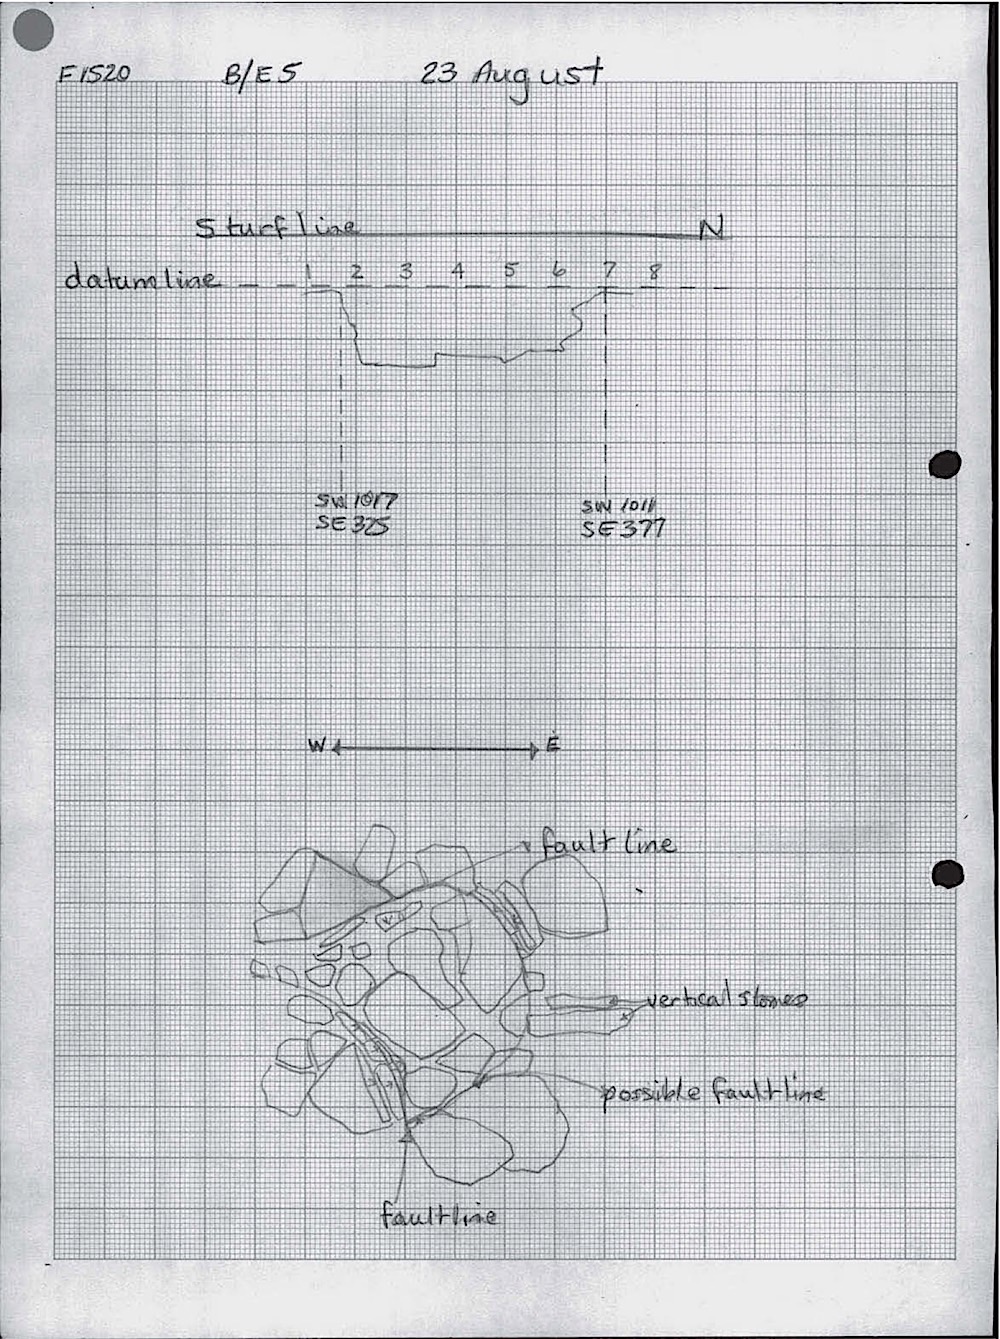 F1520 B/E5 23 August
S turf line N
datum line 1 2 3 4 5 6 7 8
SW 1017
SE 325
SW 1011
SE 377
W E
fault line
vertical stones
possible faultline
faultline